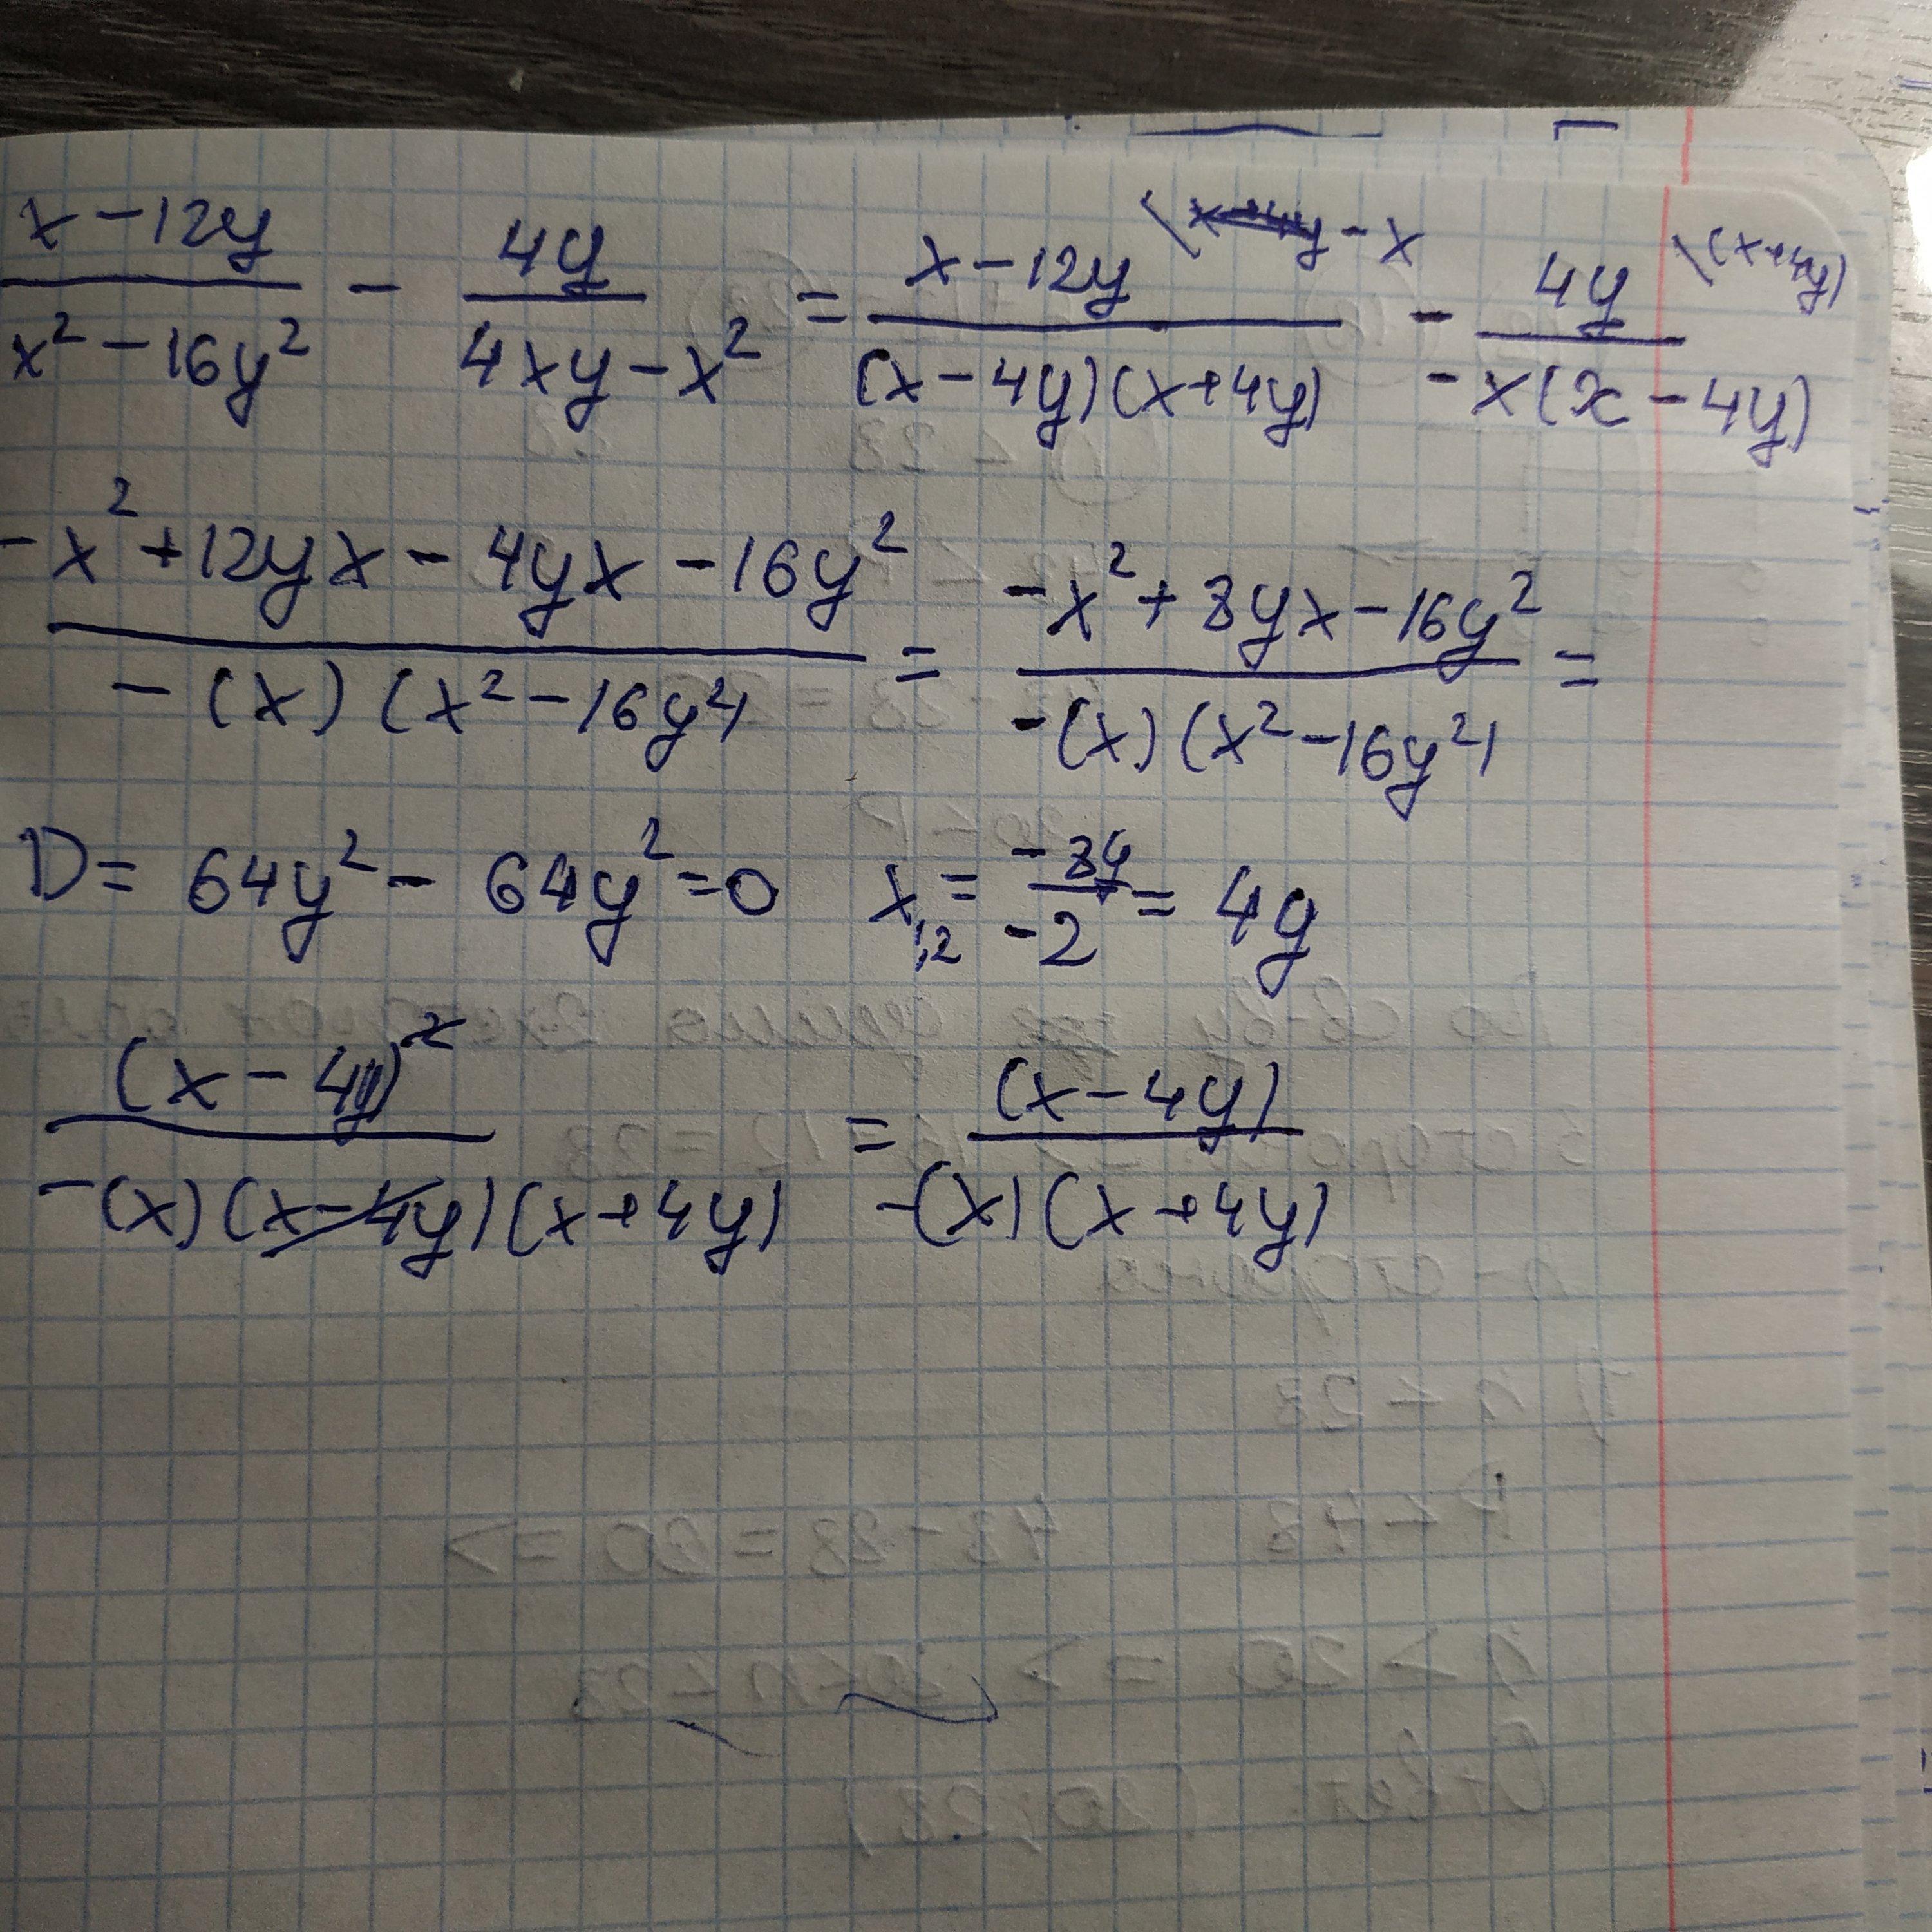 (x-12y)/(x²-16y²) - 4y/(4xy-x²) = (x-12y)/((x-4y)(x+4y)) \-x - 4y/(-x(x-4y)) \(x+4y)
(-x²+12yx-4yx-16y²)/(-(x)(x²-16y²)) = (-x²+8yx-16y²)/(-(x)(x²-16y²)) =
D = 64y² - 64y² = 0 x₁,₂ = -8y/-2 = 4y
(x-4y)²/(-(x)(x-4y)(x+4y)) = (x-4y)/(-(x)(x+4y))